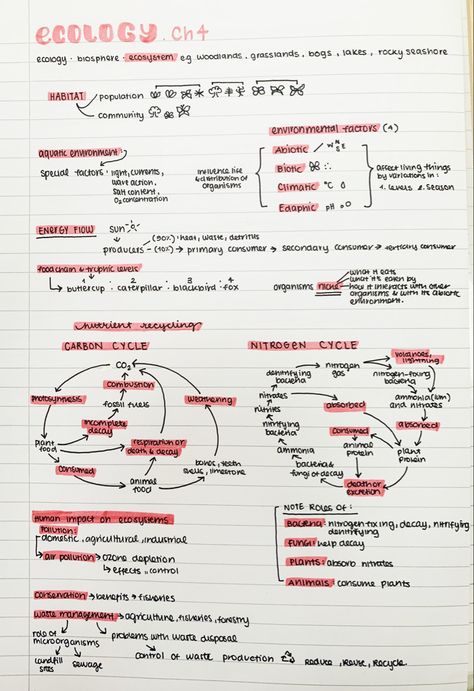 ecology. Ch4
ecology · biosphere · ecosystem eg. woodlands, grasslands, bogs, lakes, rocky seashore
HABITAT population
community
environmental factors (4)
aquatic environment
special factors: light, currents,
wave action,
salt content,
O₂ concentration
influence life
& distribution of
organisms
Abiotic N W E S
Biotic
Climatic °C
Edaphic pH
affect living things
by variations in:
1. levels 2. season
ENERGY FLOW sun
producers (90%) · heat, waste, detritus
(10%) → primary consumer → secondary consumer → tertiary consumer
food chain & trophic levels
1 2 3 4
buttercup · caterpillar · blackbird · fox
organisms niche
what it eats
what it's eaten by
how it interacts with other
organisms & with its abiotic
environment.
nutrient recycling
CARBON CYCLE
CO₂
combustion
photosynthesis
fossil fuels
weathering
incomplete
decay
respiration or
death & decay
plant
food
consumed
animal
food
bones, teeth
limestone
NITROGEN CYCLE
volcanoes,
lightning
denitrifying
bacteria
nitrogen
gas
nitrogen-fixing
bacteria
nitrates
absorbed
ammonia
and nitrates
nitrites
nitrifying
bacteria
consumed
absorbed
ammonia
animal
protein
plant
protein
bacteria &
fungi of decay
death or
excretion
Human impact on ecosystems
Pollution:
domestic, agricultural, industrial
air pollution → ozone depletion
↳ effects, control
NOTE ROLES OF:
Bacteria: nitrogen fixing, decay, nitrifying,
denitrifying
Fungi: help decay
Plants: absorb nitrates
Animals: consume plants
conservation → benefits → fisheries
waste management → agriculture, fisheries, forestry
role of
microorganisms
problems with waste disposal
landfill
sites
sewage
control of waste production reduce, reuse, recycle.